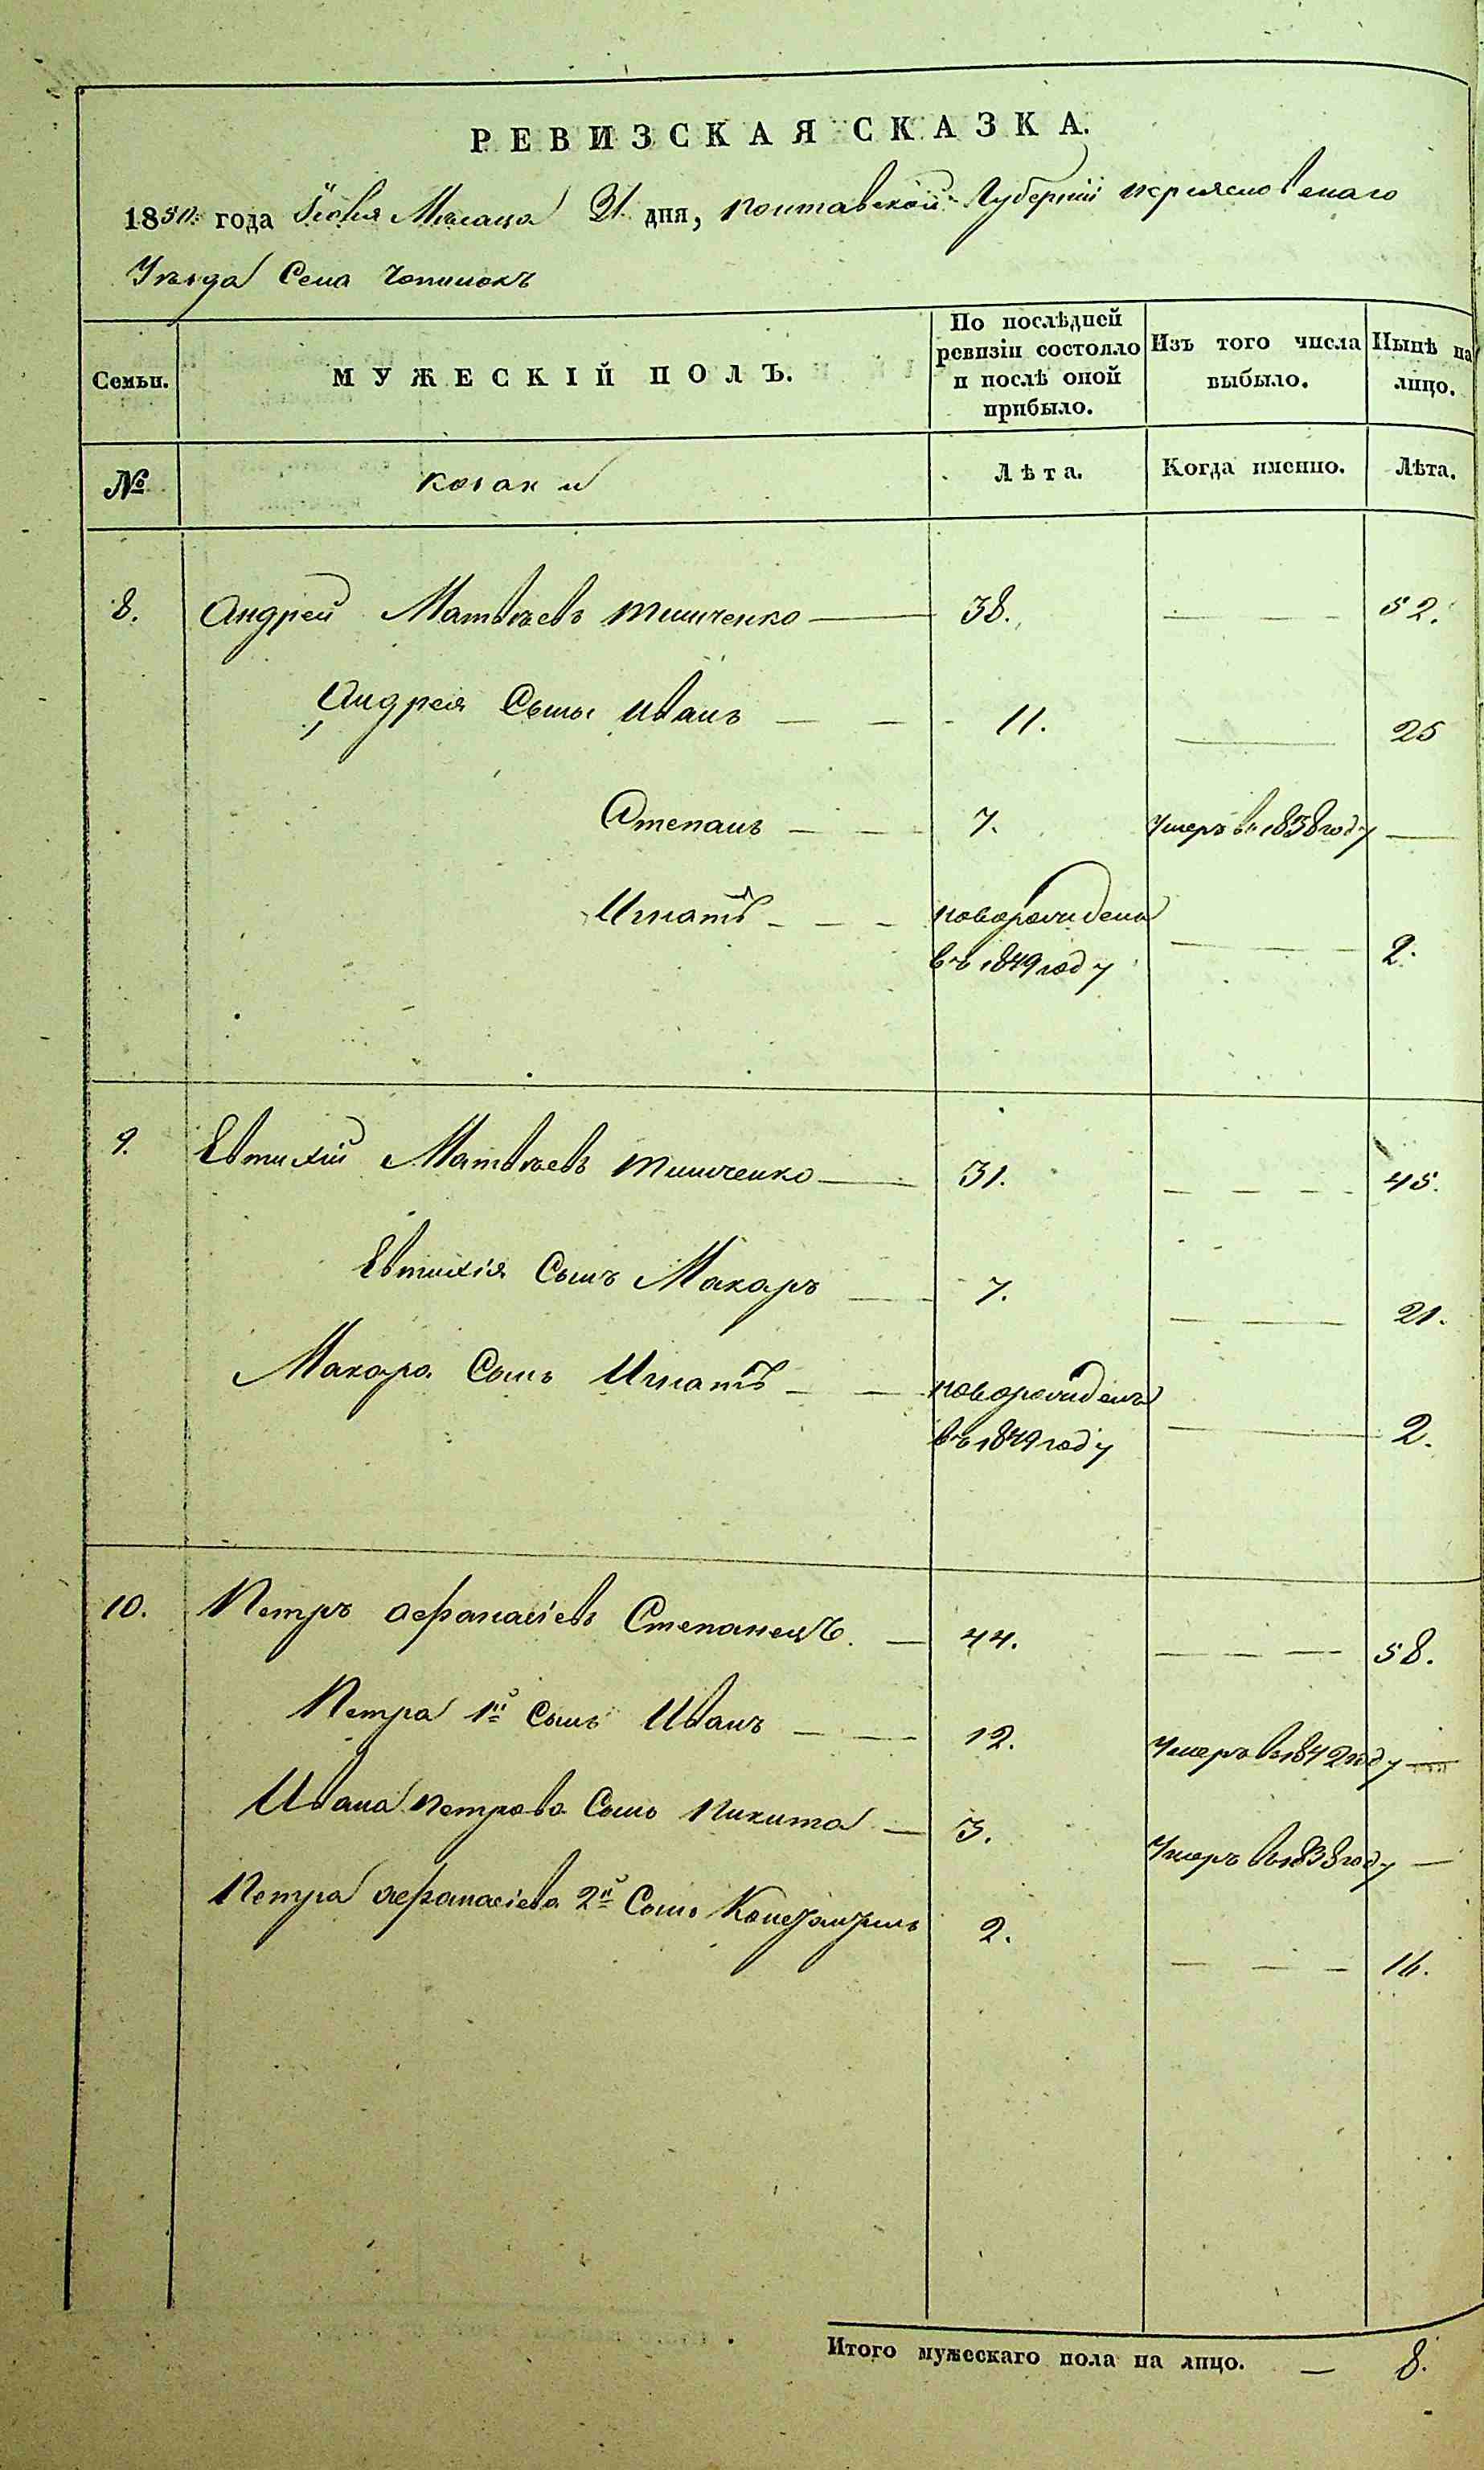 РЕВИЗСКАЯ СКАЗКА.
1850. года Іюня Месяца 21 дня, Полтавской Губерніи Переясловскаго
Уезда Села Чопилокъ
Семьи.
МУЖЕСКІЙ ПОЛЪ.
По послѣдней ревизіи состояло и послѣ оной прибыло.
Изъ того числа выбыло.
Нынѣ на лицо.
№
Козаки
Лѣта.
Когда именно.
Лѣта.
8. Андрей Матвѣевъ Тимченко — 38. — — — 52.
Андрея Сыны Иванъ — — - 11. — 25
Степанъ — — 7. Умеръ въ 1838 году —
Игнатъ — — — новорожденъ
въ 1849 году — 2.
9. Евтихій Матвѣевъ Тимченко — 31. — — — 45.
Евтихія Сынъ Макаръ — 7. — 21.
Макара Сынъ Игнатъ — — новорожденъ
въ 1849 году — 2.
10. Петръ Афанасіевъ Степанецъ. — 44. — — — 58.
Петра 1й Сынъ Иванъ — — 12. Умеръ въ 1842 году —
Ивана Петрова Сынъ Никита — 3. Умеръ въ 1838 году —
Петра Афанасіева 2й Сынъ Константинъ 2. — — — 16.
Итого мужескаго пола на лицо. — 8.